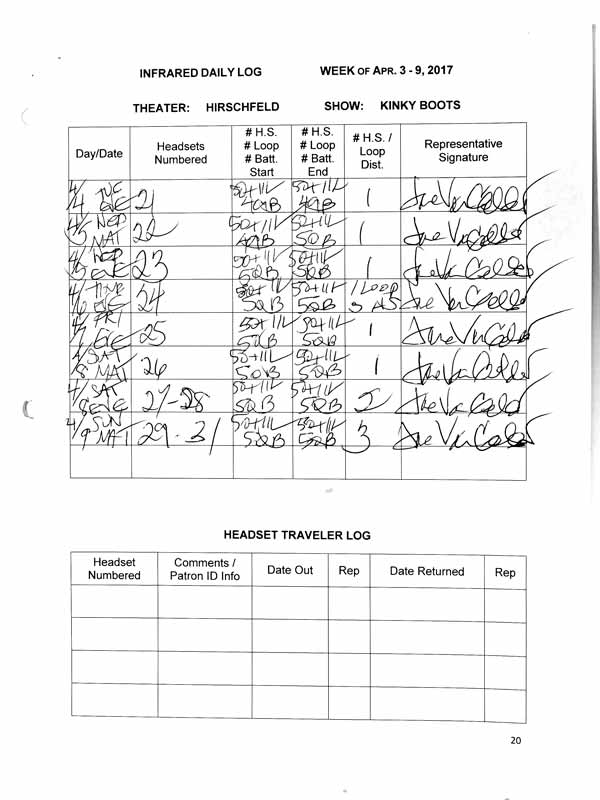 INFRARED DAILY LOG WEEK OF APR. 3 - 9, 2017
THEATER: HIRSCHFELD SHOW: KINKY BOOTS
Day/Date Headsets Numbered # H.S. # Loop # Batt. Start # H.S. # Loop # Batt. End # H.S. / Loop Dist. Representative Signature
4/4 TUE EVE 21 50+1IL 49B 50+1IL 49B 1
4/5 WED MAT 22 50+1IL 49B 50+1IL 50B 1
4/5 WED EVE 23 50+1IL 50B 50+1IL 50B 1
4/6 THU EVE 24 50+1IL 50B 50+1IL 50B 1 LOOP
4/7 FRI EVE 25 50+1IL 50B 50+1IL 50B 1
4/8 SAT MAT 26 50+1IL 50B 50+1IL 50B 1
4/8 SAT EVE 27-28 50+1IL 50B 50+1IL 50B 2
4/9 SUN MAT 29-31 50+1IL 50B 50+1IL 50B 3
HEADSET TRAVELER LOG
Headset Numbered Comments / Patron ID Info Date Out Rep Date Returned Rep
20